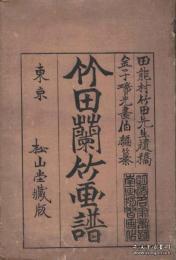 田能村竹田先生遺稿
金子曒光畫伯編纂
竹田蘭竹画譜
東京　松山堂藏版